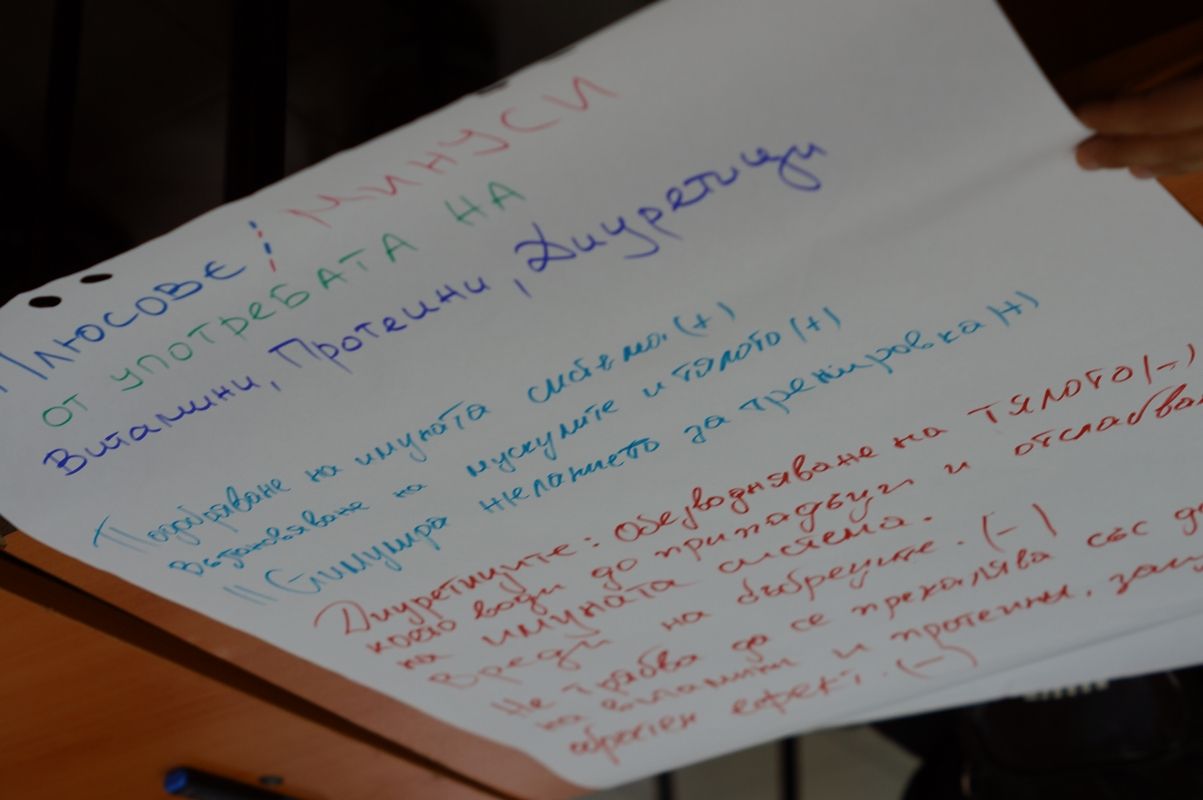 ПЛЮСОВЕ / МИНУСИ
ОТ УПОТРЕБАТА НА
Витамини, Протеини, Диуретици
Подобряване на имуната система. (+)
Въстановяване на мускулите и тялото (+)
Стимулира желанието за тренировка (+)
Диуретиците: Обезводняване на тялото (-)
което води до припадъци и отслабван
на имуната система.
Вреди на бъбреците. (-)
Не трябва да се прекалява със
на витамини и протеини,
обратен ефект. (-)